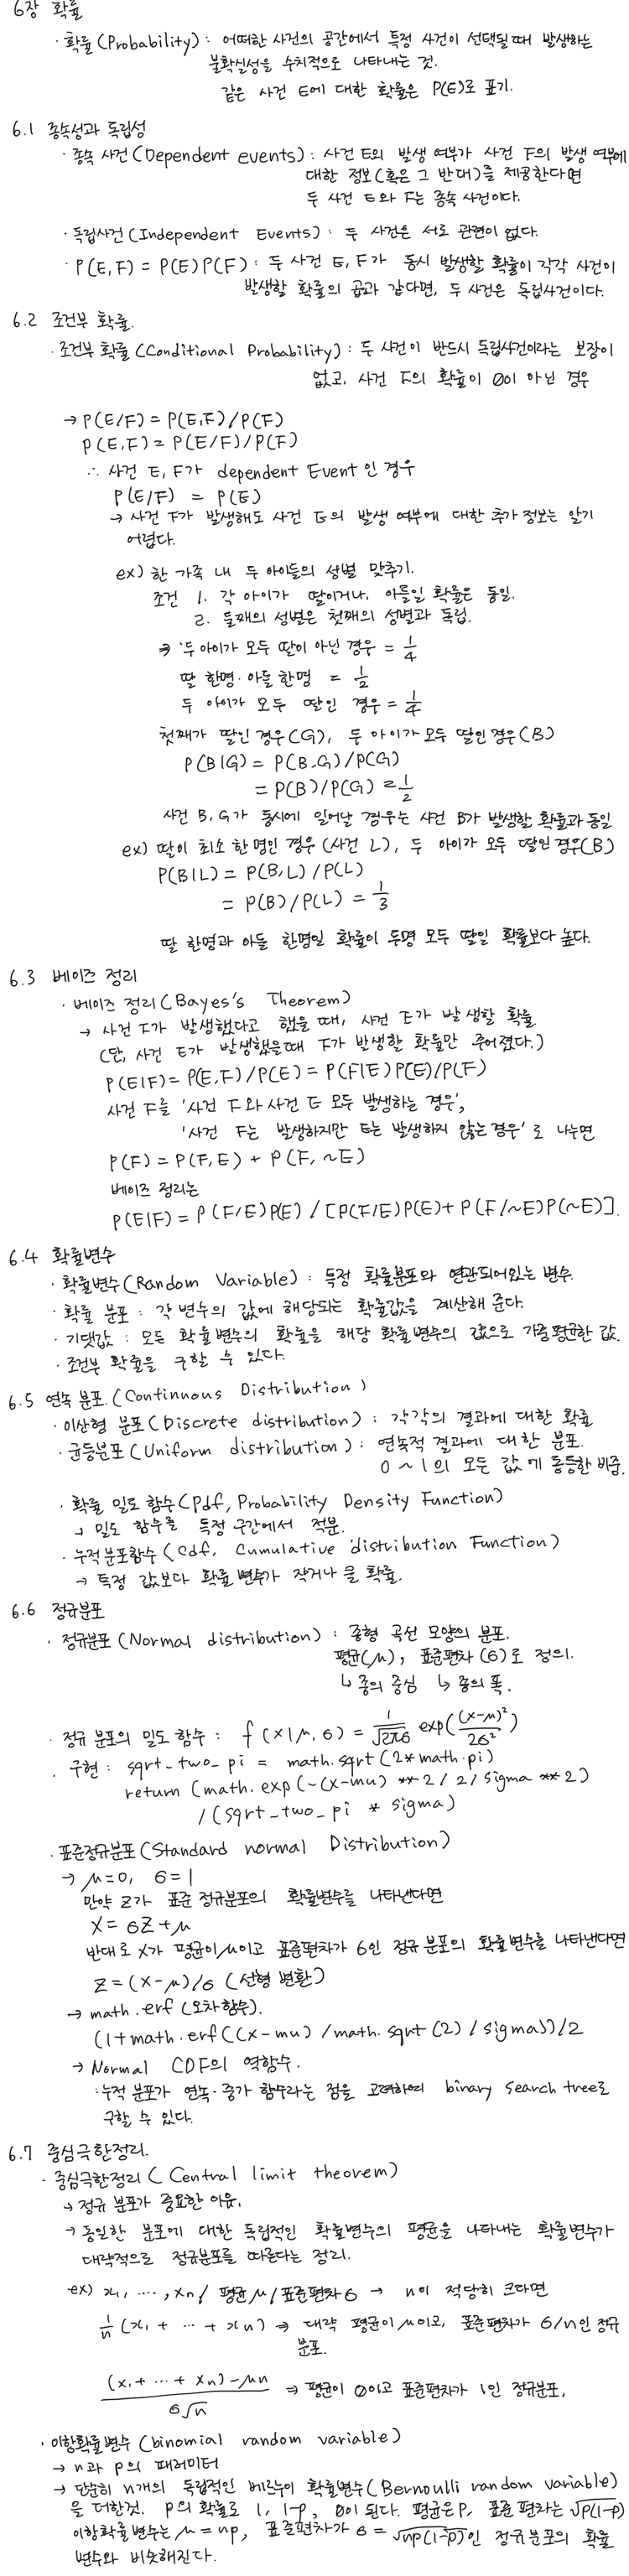 6장 확률
· 확률(Probability) : 어떠한 사건의 공간에서 특정 사건이 선택될 때 발생하는
불확실성을 수치적으로 나타내는 것.
같은 사건 E에 대한 확률은 P(E)로 표기.
6.1 종속성과 독립성
· 종속 사건(Dependent events) : 사건 E의 발생 여부가 사건 F의 발생 여부에
대한 정보(혹은 그 반대)를 제공한다면
두 사건 E와 F는 종속 사건이다.
· 독립사건(Independent Events) : 두 사건은 서로 관련이 없다.
· P(E,F) = P(E)P(F) : 두 사건 E,F가 동시 발생할 확률이 각각 사건이
발생할 확률의 곱과 같다면, 두 사건은 독립사건이다.
6.2 조건부 확률.
· 조건부 확률(Conditional Probability) : 두 사건이 반드시 독립사건이라는 보장이
없고, 사건 F의 확률이 0이 아닌 경우
→ P(E/F) = P(E,F)/P(F)
P(E,F) = P(E/F)/P(F)
∴ 사건 E,F가 dependent Event인 경우
P(E/F) = P(E)
→ 사건 F가 발생해도 사건 E의 발생 여부에 대한 추가 정보는 알기
어렵다.
ex) 한 가족 내 두 아이들의 성별 맞추기.
조건 1. 각 아이가 딸이거나, 아들일 확률은 동일.
2. 둘째의 성별은 첫째의 성별과 독립.
⇒ 두 아이가 모두 딸이 아닌 경우 = 1/4
딸 한명·아들 한명 = 1/2
두 아이가 모두 딸인 경우 = 1/4
첫째가 딸인 경우(G), 두 아이가 모두 딸인 경우(B)
P(B|G) = P(B,G)/P(G)
= P(B)/P(G) = 1/2
사건 B,G가 동시에 일어날 경우는 사건 B가 발생할 확률과 동일
ex) 딸이 최소 한 명인 경우(사건 L), 두 아이가 모두 딸인 경우(B)
P(B|L) = P(B,L)/P(L)
= P(B)/P(L) = 1/3
딸 한명과 아들 한명일 확률이 두명 모두 딸일 확률보다 높다.
6.3 베이즈 정리
· 베이즈 정리(Bayes's Theorem)
→ 사건 F가 발생했다고 했을 때, 사건 E가 발생할 확률
(단, 사건 E가 발생했을때 F가 발생할 확률만 주어졌다.)
P(E|F) = P(E,F)/P(E) = P(F|E)P(E)/P(F)
사건 F를 '사건 F와 사건 E 모두 발생하는 경우',
'사건 F는 발생하지만 E는 발생하지 않는 경우'로 나누면
P(F) = P(F,E) + P(F,~E)
베이즈 정리는
P(E|F) = P(F/E)P(E) / [P(F/E)P(E) + P(F/~E)P(~E)].
6.4 확률변수
· 확률변수(Random Variable) : 특정 확률분포와 연관되어있는 변수.
· 확률 분포 : 각 변수의 값에 해당되는 확률값을 계산해 준다.
· 기댓값 : 모든 확률변수의 확률을 해당 확률변수의 값으로 가중평균한 값.
· 조건부 확률을 구할 수 있다.
6.5 연속 분포.(Continuous Distribution)
· 이산형 분포(Discrete distribution) : 각각의 결과에 대한 확률
· 균등분포(Uniform distribution) : 연속적 결과에 대한 분포.
0 ~ 1의 모든 값에 동등한 비중.
· 확률 밀도 함수(pdf, Probability Density Function)
→ 밀도 함수를 특정 구간에서 적분.
· 누적분포함수(cdf, Cumulative distribution Function)
→ 특정 값보다 확률 변수가 작거나 클 확률.
6.6 정규분포
· 정규분포(Normal distribution) : 종형 곡선 모양의 분포.
평균(μ), 표준편차(σ)로 정의.
↳ 종의 중심 ↳ 종의 폭.
· 정규 분포의 밀도 함수 : f(x|μ,σ) = 1/√2πσ exp((x-μ)²/2σ²)
· 구현 : sqrt_two_pi = math.sqrt(2*math.pi)
return (math.exp(-(x-mu) **2/2/sigma **2)
/(sqrt_two_pi * sigma)
· 표준정규분포(Standard normal Distribution)
→ μ=0, σ=1
만약 Z가 표준 정규분포의 확률변수를 나타낸다면
X = σZ+μ
반대로 X가 평균이 μ이고 표준편차가 σ인 정규 분포의 확률변수를 나타낸다면
Z = (X-μ)/σ (선형 변환)
→ math.erf (오차함수).
(1+math.erf((x-mu)/math.sqrt(2)/sigma))/2
→ Normal CDF의 역함수.
: 누적 분포가 연속·증가 함수라는 점을 고려하여 binary search tree로
구할 수 있다.
6.7 중심극한정리.
· 중심극한정리(Central limit theorem)
→ 정규 분포가 중요한 이유.
→ 동일한 분포에 대한 독립적인 확률변수의 평균을 나타내는 확률변수가
대략적으로 정규분포를 따른다는 정리.
ex) x₁, ····, xn / 평균 μ / 표준편차 σ → n이 적당히 크다면
1/n (x₁ + ··· + xn) ⇒ 대략 평균이 μ이고, 표준편차가 σ/n인 정규
분포.
(x₁ + ··· + xn) - μn / σ√n ⇒ 평균이 0이고 표준편차가 1인 정규분포.
· 이항확률변수(binomial random variable)
→ n과 p의 패러미터
→ 단순히 n개의 독립적인 베르누이 확률변수(Bernoulli random variable)
을 더한것. p의 확률로 1, 1-p, 0이 된다. 평균은 p, 표준 편차는 √p(1-p)
이항확률변수는 μ = np, 표준편차가 σ = √np(1-p)인 정규분포의 확률
변수와 비슷해진다.